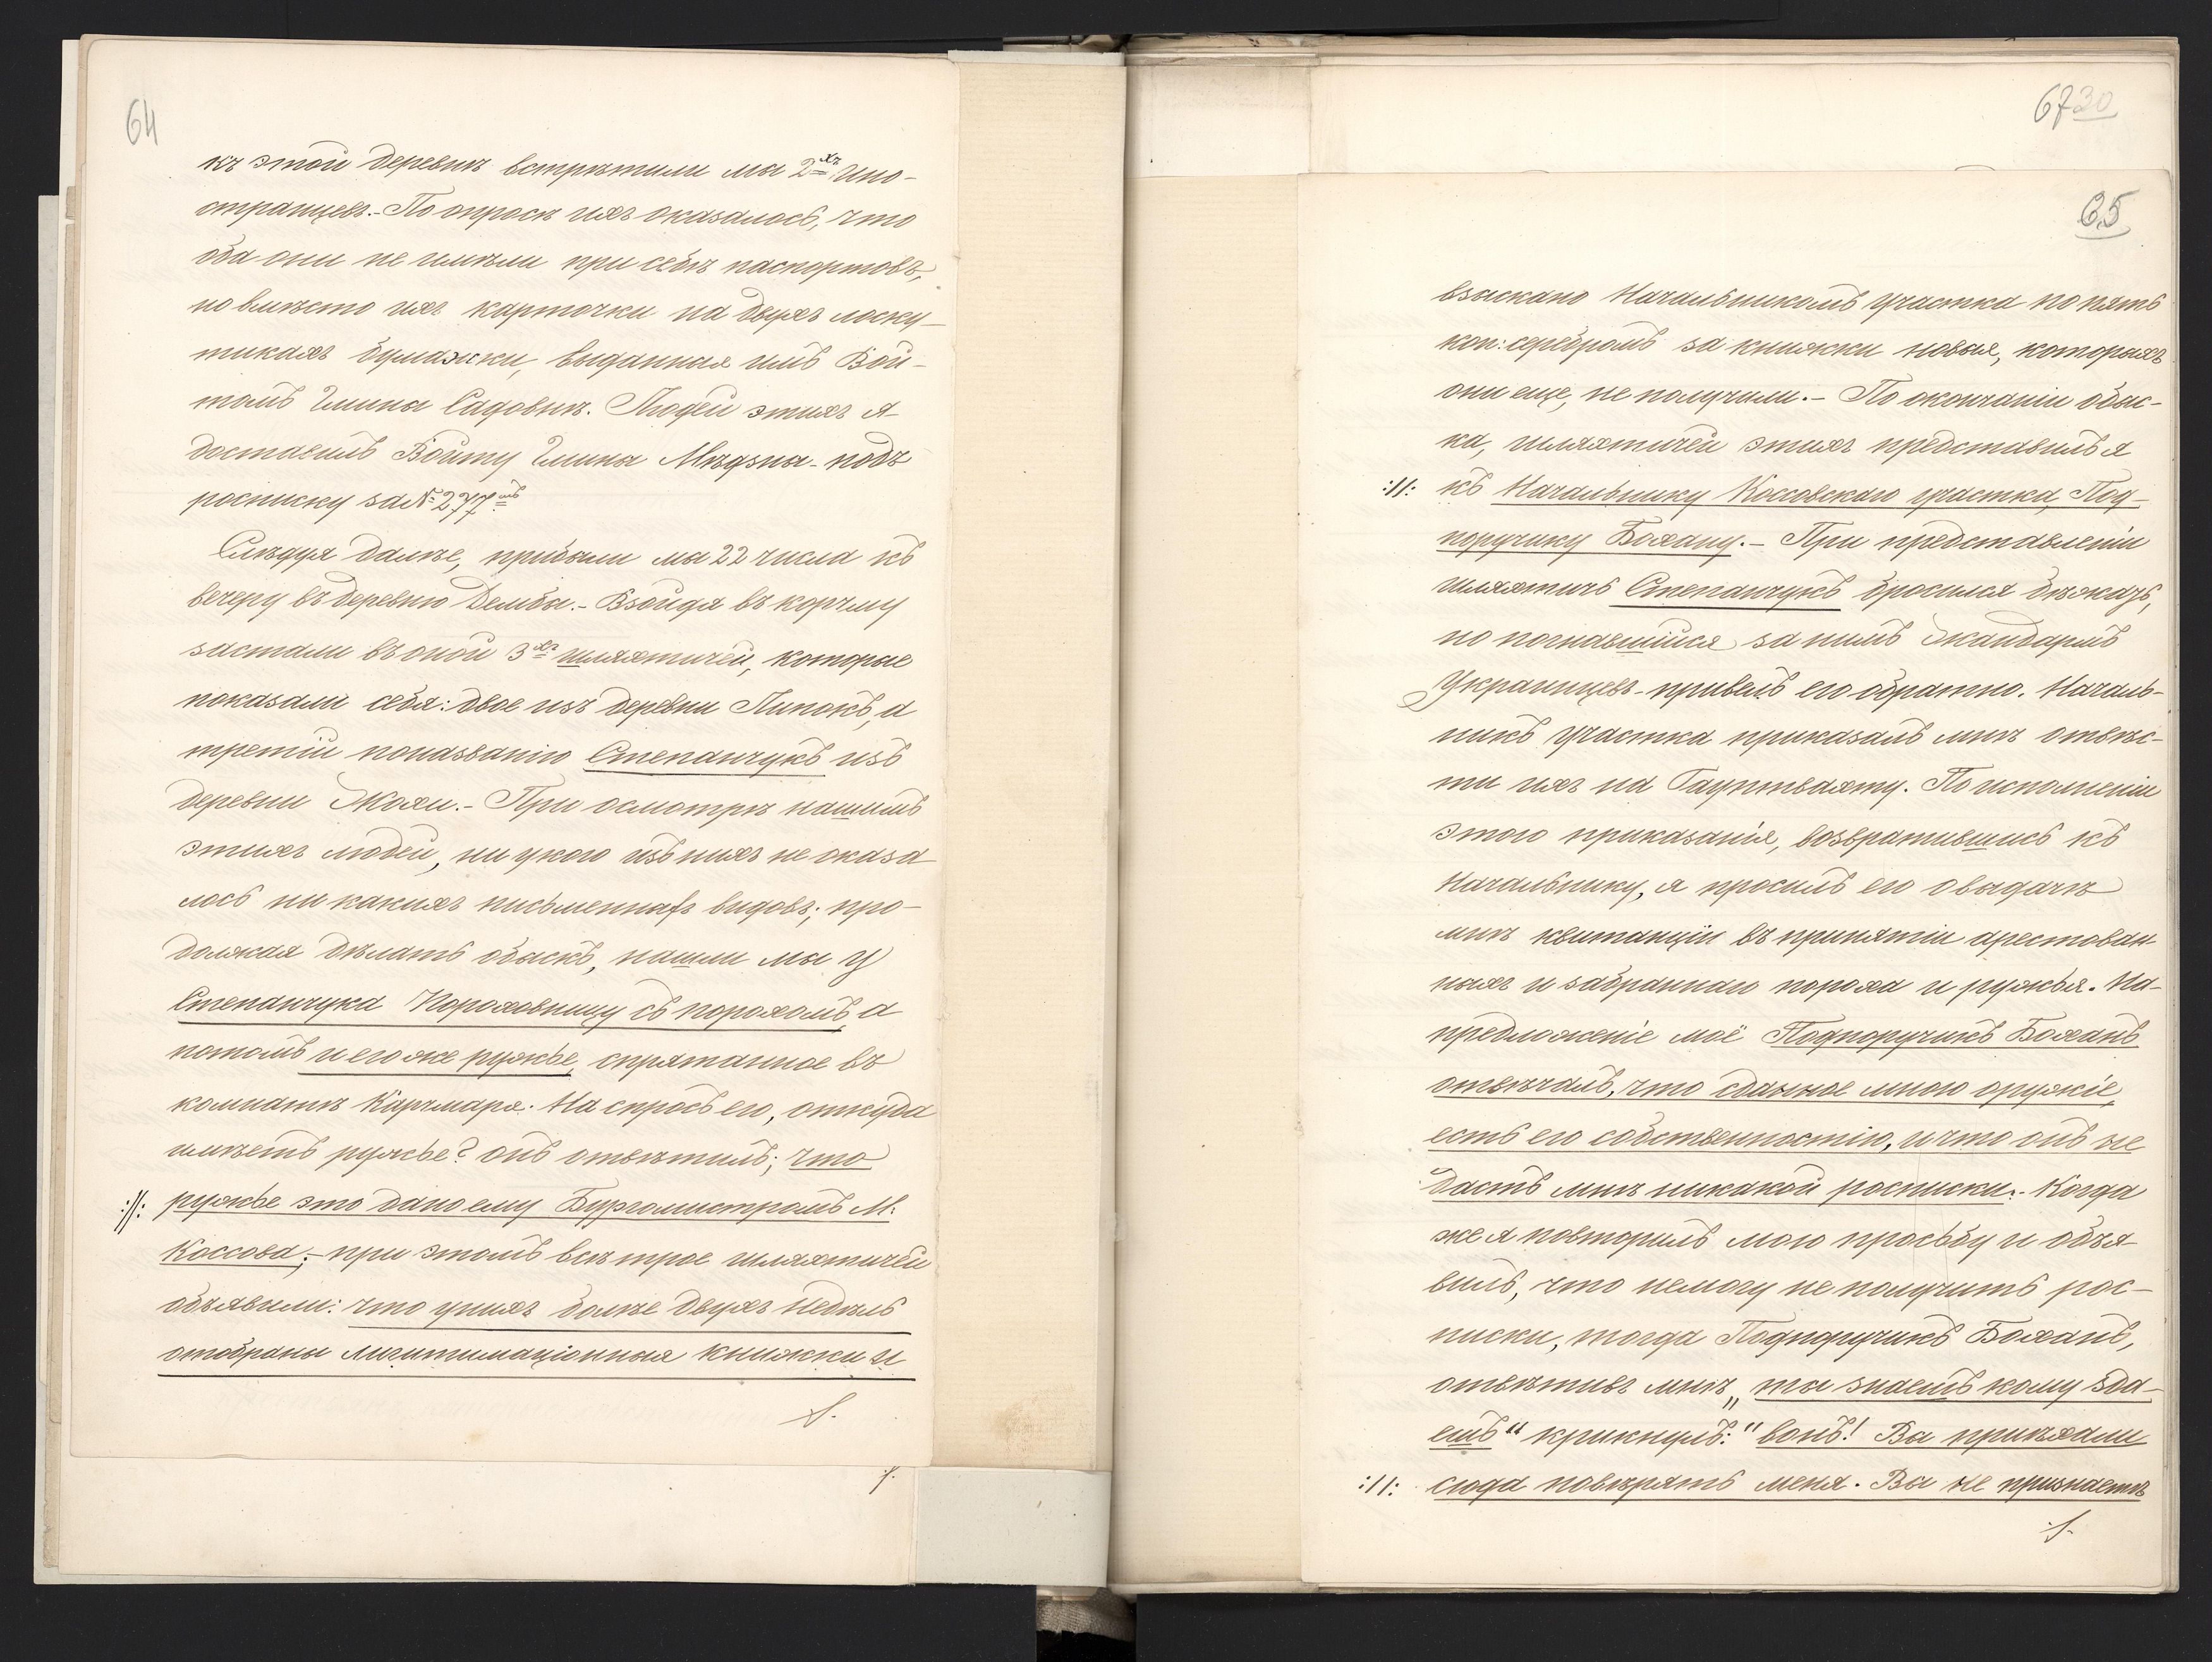 64
къ этой деревнѣ встрѣтили мы 2хъ Ино-
странцевъ.- По опросѣ ихъ оказалось, что
оба они не имѣли при себѣ паскортовъ,
но вмѣсто ихъ карточки на двухъ лоску-
тикахъ бумажки, выданныя имъ Вой-
томъ Гмины Садовнѣ. Людей этихъ я
доставилъ Войту Гмины Мѣдзна - подъ
росписку за № 277мъ
Слѣдуя далѣе, прибыли мы 22 числа къ
вечеру въ деревню Дембы.- Взойдя въ корчму
застали въ оной 3хъ шляхтичей, которые
показали себя: двое изъ деревни Липокъ, а
третій по названію Степанчукъ изъ
деревни Жохи.- При осмотрѣ нашимъ
этихъ людей, ни у кого изъ нихъ не оказа
лось ни какихъ письменныхъ видовъ; про-
должая дѣлать обыскъ, нашли мы у
Степанчука Пороховницу съ порохомъ, а
потомъ и его же ружье, спрятанное въ
комнатѣ Карчмаря. На спросъ его, откуда
имѣетъ ружье? онъ отвѣтилъ; что
:||: ружье это дано ему Бургомистромъ М:
Коссова;- при этомъ всѣ трое шляхтичей
объявили: что у нихъ болѣе двухъ недѣль
отобраны лигитимаціонныя книжки и
./.
./.
67 30
65
взыскано Начальникомъ участка по пять
коп: серебромъ за книжки новыя, которыхъ
они еще, не получили.- По окончаніи обыс-
ка, шляхтичей этихъ представилъ я
:||: къ Начальнику Коссовскаго участка, Под-
поручику Бохану.- При представленіи
шляхтичъ Степанчукъ бросился бѣжать,
но погнавшійся за нимъ Жандармъ
Украинцевъ - привелъ его обратно. Началь-
никъ участка приказалъ мнѣ отвѣс-
ти ихъ на Гауптвахту. По исполненіи
этого приказанія, возвратившись къ
Начальнику, я просилъ его о выдачѣ
мнѣ квитанціи въ принятіи арестован
ныхъ и забраннаго пороха и ружья. На-
предложеніе моё Подпоручикъ Боханъ
отвѣчалъ, что сданное мною оружіе,
есть его собственностію, и что онъ не
дастъ мнѣ никакой росписки.- Когда
же я повторилъ мою просьбу и объя-
вилъ, что немогу не получить рос-
писки, тогда Подпоручикъ Боханъ,
отвѣтивъ мнѣ „ты знаешъ кому зда-
ешъ" крикнулъ: "вонъ! Вы приѣхали
:||: сюда повѣрять меня. Вы не признаетъ
./.